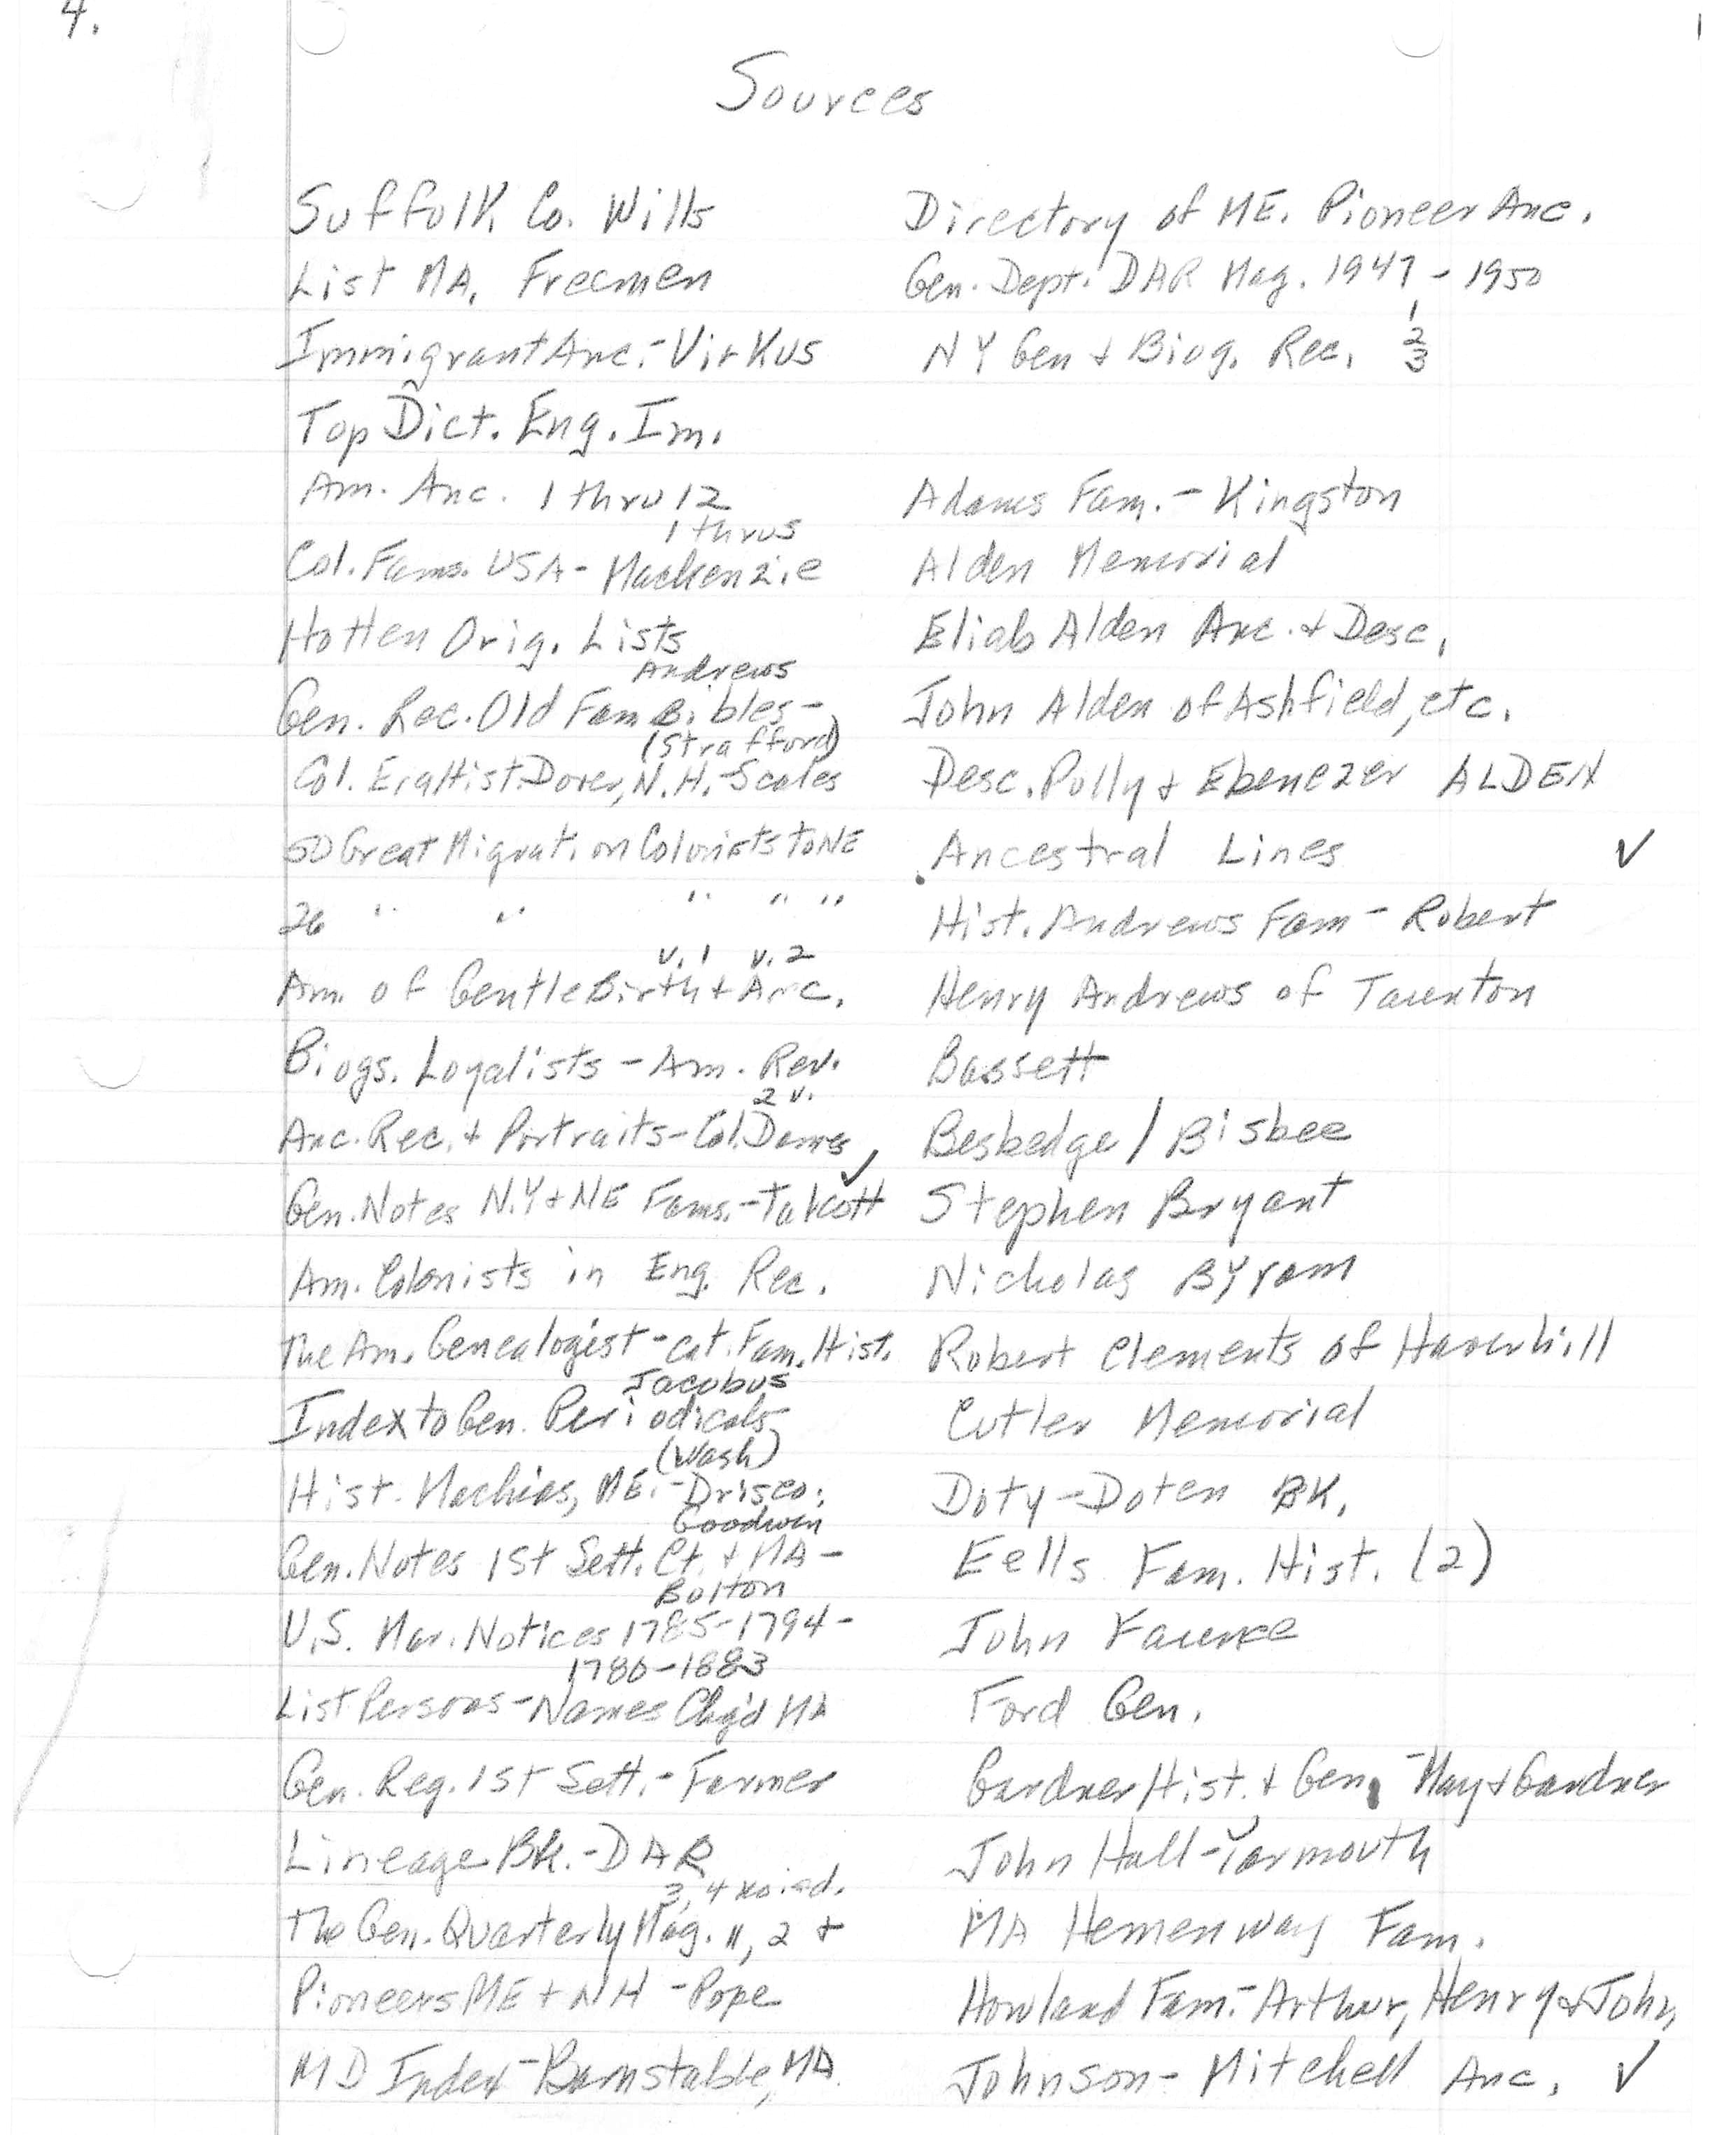 4.
Sources
Suffolk Co. Wills
List MA. Freemen
Immigrant Anc. - Virkus
Top Dict. Eng. Im.
Am. Anc. 1 thru 12
1 thru 5
Col. Fams. USA - Mackenzie
Hotten Orig. Lists
Andrews
Gen. Rec. Old Fam Bibles -
(Strafford)
Col. Era Hist. Dover, N.H. - Scales
50 Great Migration Colonists to NE
26 " " " " "
v. 1 v. 2
Am. of Gentle Birth + Anc.
Biogs. Loyalists - Am. Rev.
2 v.
Anc. Rec. + Portraits - Col. Dames
✓
Gen. Notes N.Y + NE Fams. - Talcott
Am. Colonists in Eng. Rec.
The Am. Genealogist - cat. Fam. Hist.
Jacobus
Index to Gen. Periodicals
(Wash)
Hist. Machias, ME. - Drisco.
Goodwin
Gen. Notes 1st Sett. Ct. + MA -
Bolton
U.S. Mar. Notices 1785-1794 -
1780-1883
List Persons - Names Chg'd MA
Gen. Reg. 1st Sett. - Farmer
Lineage Bk. - DAR
3, 4
The Gen. Quarterly Mag. 1, 2 +
Pioneers ME + NH - Pope
MD Index - Barnstable, MA
Directory of ME. Pioneer Anc.
Gen. Dept. DAR Mag. 1947 - 1950
1
2
NY Gen + Biog. Rec. 3
Adams Fam. - Kingston
Alden Memorial
Eliab Alden Anc. + Desc.
John Alden of Ashfield, etc.
Desc. Polly + Ebenezer ALDEN
Ancestral Lines ✓
Hist. Andrews Fam - Robert
Henry Andrews of Taunton
Bassett
Besbedge / Bisbee
Stephen Bryant
Nicholas Byram
Robert Clements of Haverhill
Cutler Memorial
Doty - Doten BK.
Eells Fam. Hist. (2)
John Faunce
Ford Gen.
Gardner Hist. + Gen. - May + Gardner
John Hall - Yarmouth
MA Hemenway Fam.
Howland Fam. - Arthur, Henry + John
Johnson - Mitchell Anc. ✓